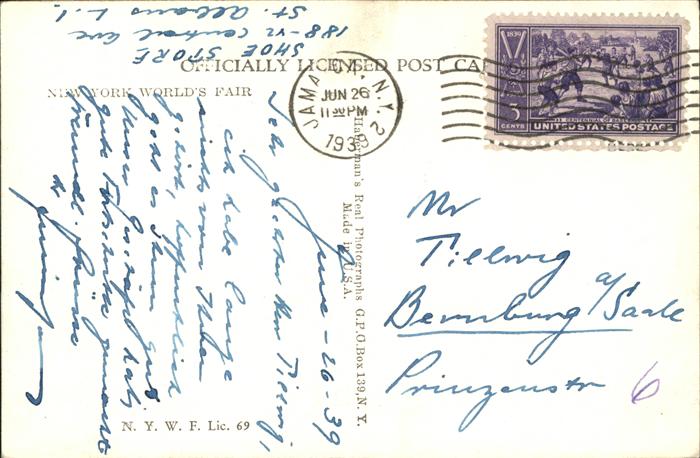 St. Albans L.I.
188-12 Central Ave
SHOE STORE
OFFICIALLY LICENSED POST CA
NEW YORK WORLD'S FAIR
JAMAICA, N.Y. 2
JUN 26
11 30 PM
1939
1839
3
CENTS
CENTENNIAL OF BASEBALL
UNITED STATES POSTAGE
June - 26 - 39
Sehr geehrter Herr Tillwig,
ich habe lange
nichts von Ihnen
gehört, hoffentlich
geht es Ihnen gut
Unser Geschäft hat
gute Fortschritte gemacht
Freundl. Grüsse
Haberman's Real Photographs G.P.O. Box 139, N. Y.
Made in U.S.A.
N. Y. W. F. Lic. 69
Mr
Tillwig
Bernburg a/Saale
Prinzenstr 6